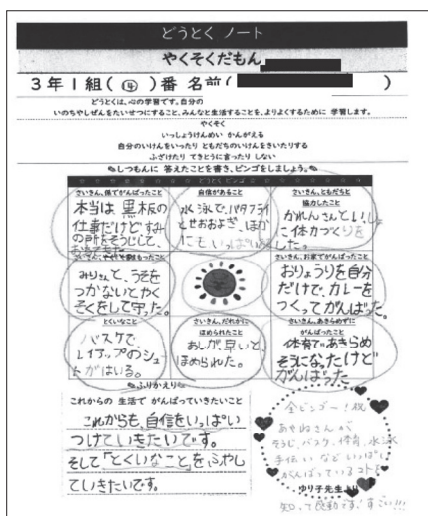 どうとく ノート
やくそくだもん
3年1組(④)番 名前( )
どうとくは、心の学習です。自分の
いのちやしぜんをたいせつにすること、みんなと生活することを、よりよくするために 学習します。
やくそく
いっしょうけんめい かんがえる
自分のいけんをいったり ともだちのいけんをきいたりする
ふざけたり てきとうに言ったり しない
しつもんに 答えたことを書き、ビンゴをしましょう。
どうとくビンゴ
さいきん、係でがんばったこと
本当は黒板の
仕事だけどすみ
の所をそうじして、
自信があること
水泳で、バタフライ
とせおよぎ、ほか
にもいっぱい
さいきん、ともだちと
協力したこと
かれんさんといっしょ
に体力つくりを
した。
みりさんと、うそを
つかないとやく
そくをして守った。
さいきん、お家でがんばったこと
おりょうりを自分
だけで、カレーを
つくってがんばった。
とくいなこと
バスケで
レイアップのシュ
トがはいる。
さいきん、だれかに
ほめられたこと
あしが、早いと、
ほめられた。
さいきん、あきらめずに
がんばったこと
体育であきらめ
そうになったけど
がんばった
ふりかえり
これからの 生活で がんばっていきたいこと
これからも、自信をいっぱい
つけていきたいです。
そして「とくいなこと」を、ふやし
ていきたいです。
全ビンゴー!祝
あやねさんが
そうじ、バスケ、体育、水泳
手伝い など いっぱい
がんばっているコト
ゆり子先生より
知って感動です!すごい!!!